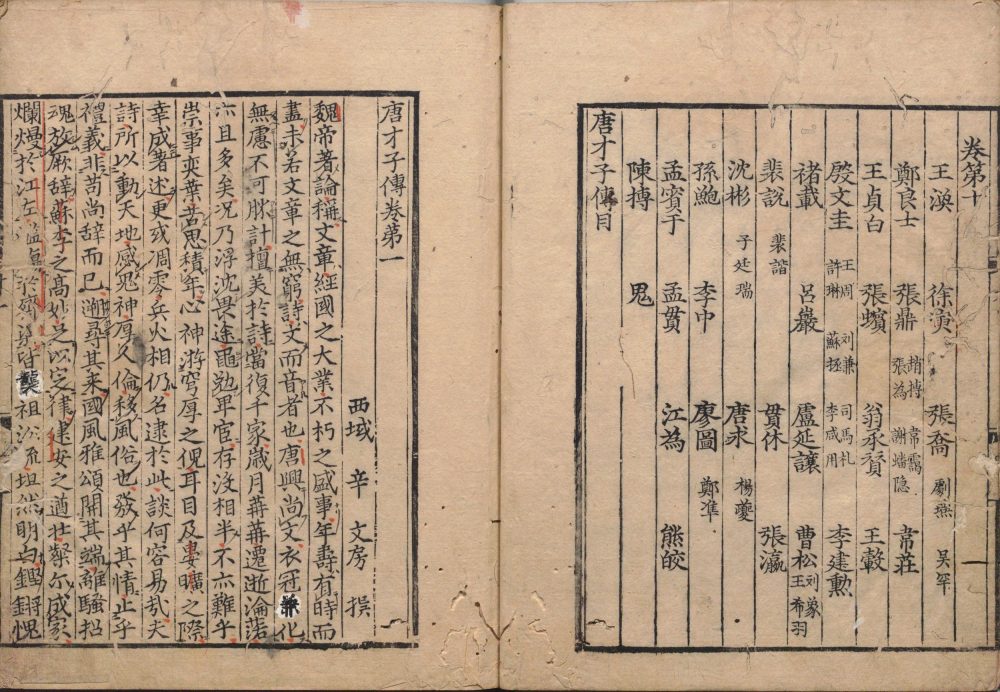 卷第十
王渙 徐演 張喬 劇燕 吳罕
鄭良士 張鼎 趙摶 張為 韋靄 謝蟠隱 韋莊
王貞白 張蠙 翁承贊 王轂
殷文圭 王周 許琳 劉兼 蘇拯 司馬札 李咸用 李建勳
褚載 呂巖 盧延讓 曹松 刘象 王希羽
裴說 裴諧 貫休 張瀛
沈彬 子廷瑞 唐求 楊夔
孫魴 李中 廖圖 鄭準
孟賓于 孟貫 江為 熊皎
陳摶 鬼
唐才子傳目
唐才子傳卷第一
西域 辛 文房 撰
魏帝著論稱文章經國之大業不朽之盛事年壽有時而
盡未若文章之無窮詩文而音者也唐興尚文衣冠兼化
無慮不可勝計擅美於詩當復千家歲月苒苒遷逝淪落
亦且多矣况乃浮沈畏途黽勉卑官存没相半不亦難乎
崇事奕葉苦思積年心神游穹厚之倪耳目及晏曠之際
幸成著述更或凋零兵火相仍名逮於此談何容易哉夫
詩所以動天地感鬼神厚人倫移風俗也發乎其情止乎
禮義非苟尚辞而已遡尋其来國風雅頌開其端離騷招
魂放厥辞蘇李之髙妙足以定律建安之遒壮粲尔成家
爛熳於江左濫觴於齊梁皆襲祖沿流坦然明白鏗鏘愧